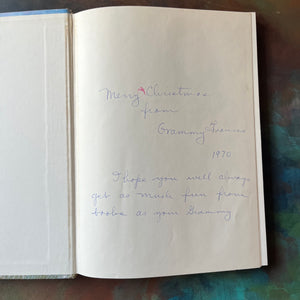 Merry Christmas
from
Grammy Frances
1970
I hope you will always
get as much fun from
books as your Grammy